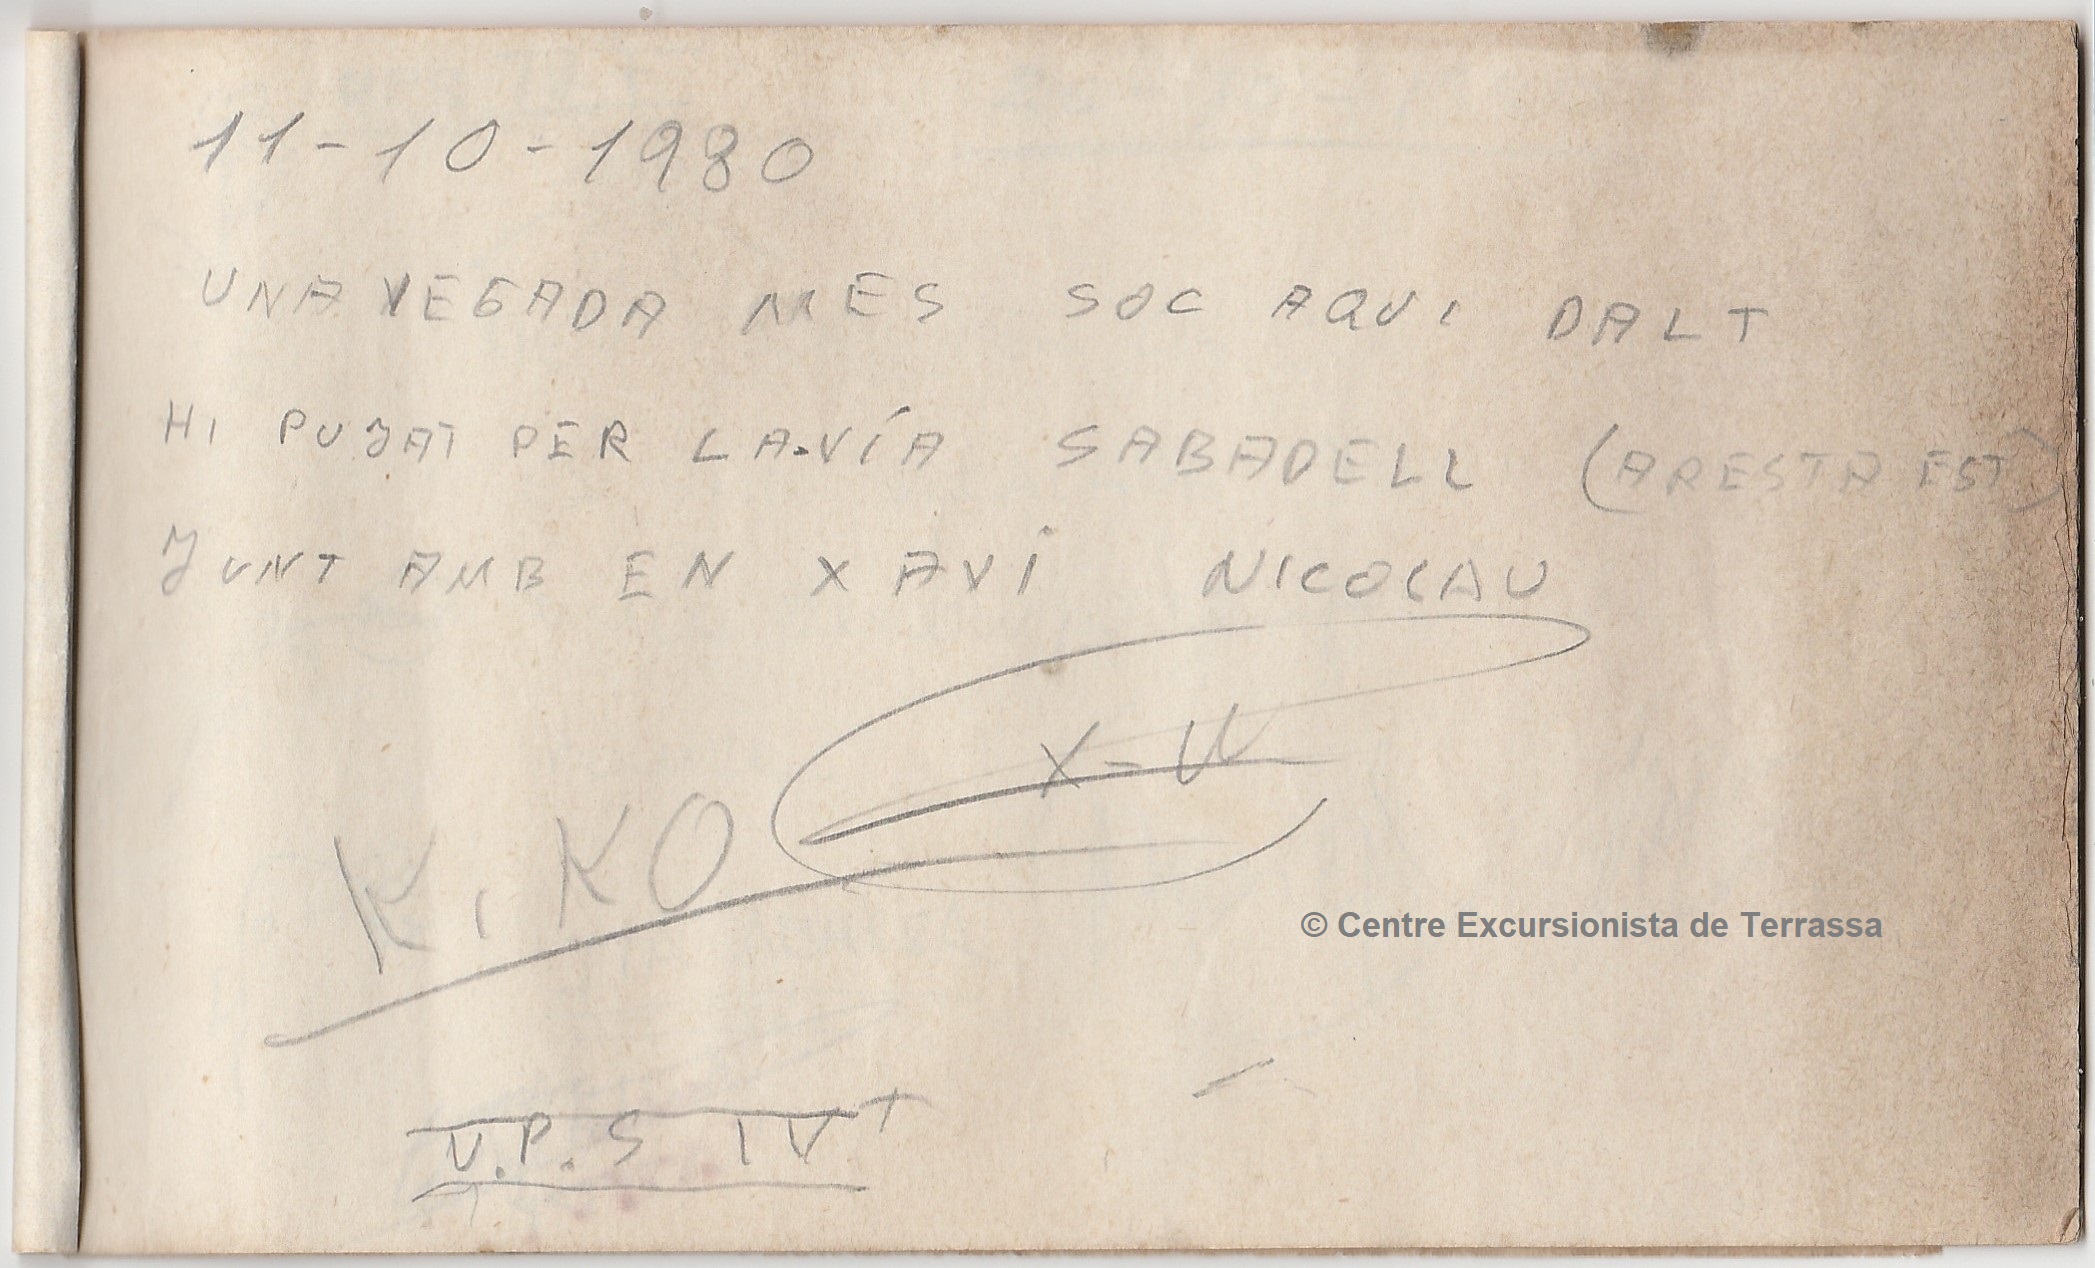 11-10-1980
UNA VEGADA MES SOC AQUI DALT
HI PUJAT PER LA VÍA SABADELL (ARESTA EST)
JUNT AMB EN XAVI NICOLAU
X-N
KIKO
© Centre Excursionista de Terrassa
V.P.S IV+